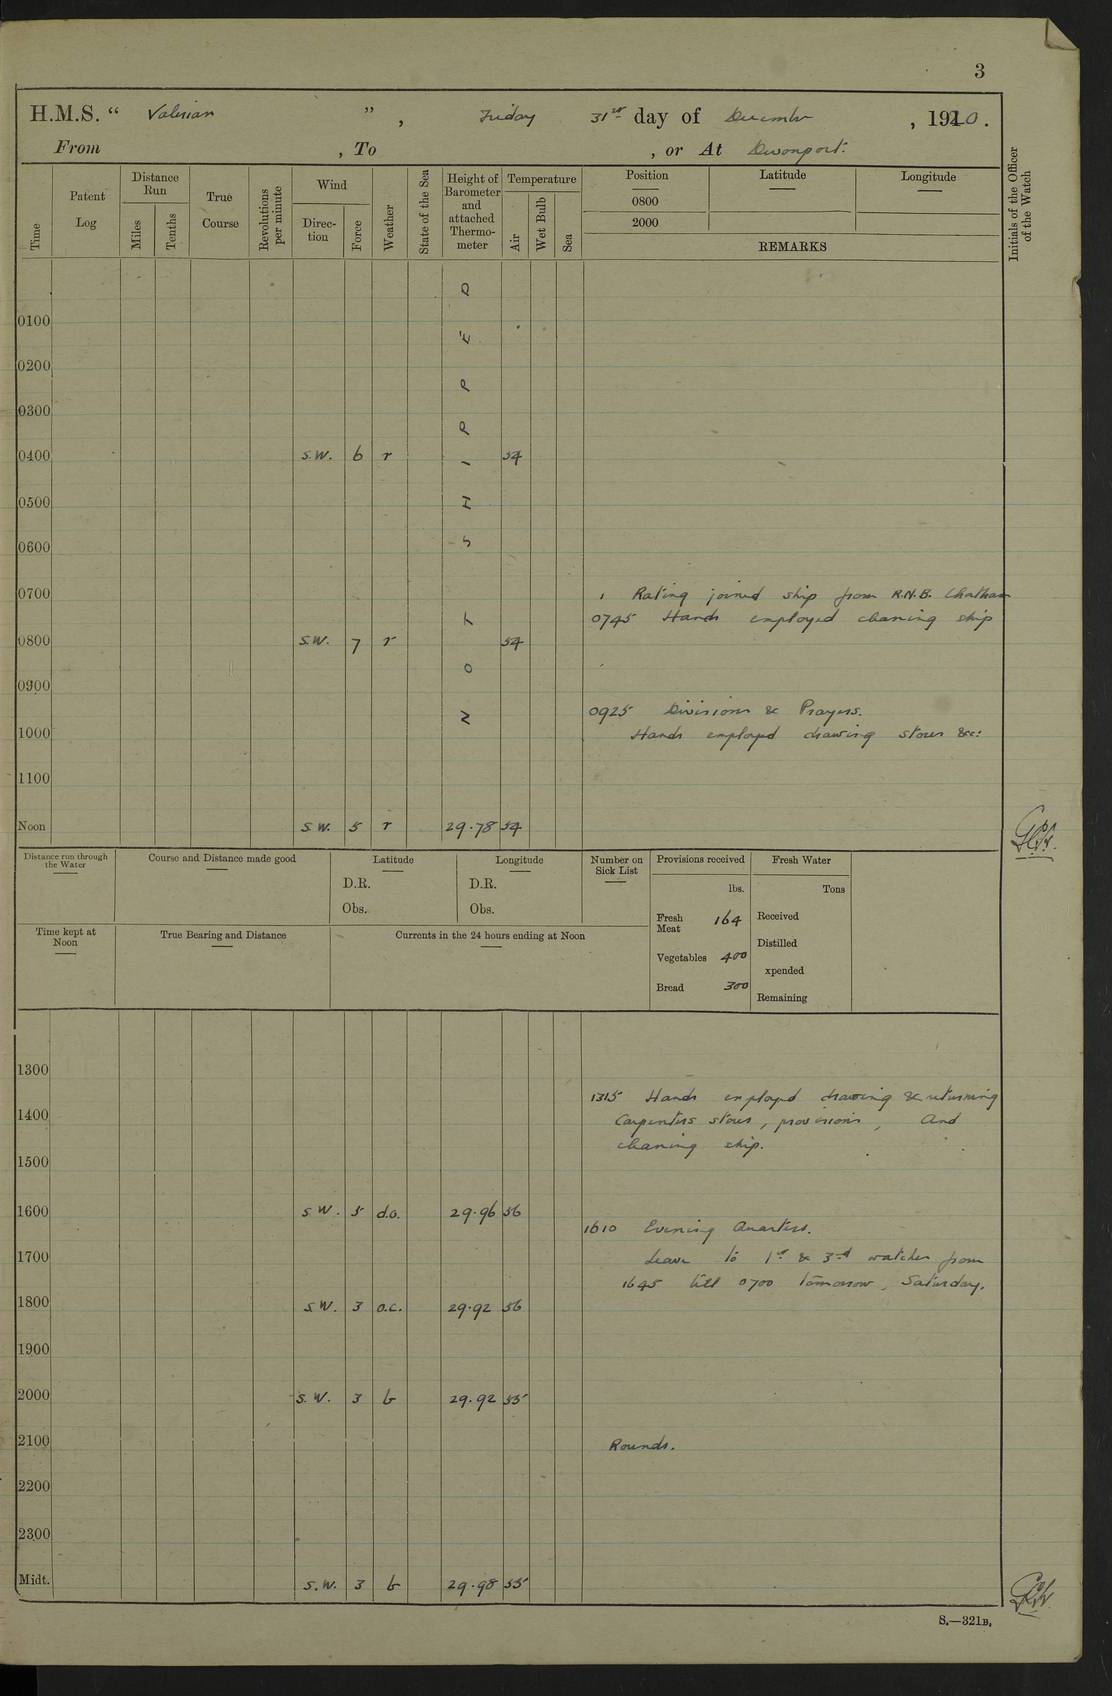 3
H.M.S. “ Valerian ” , Friday 31st day of December , 1920 .
From , To , or At Devonport.
Time
Patent Log
Distance Run
Miles
Tenths
True Course
Revolutions per minute
Wind
Direc-tion
Force
Weather
State of the Sea
Height of Barometer and attached Thermo-meter
Temperature
Air
Wet Bulb
Sea
Position
0800
2000
Latitude
Longitude
REMARKS
Initials of the Officer of the Watch
NOT SHIPPED
0100
0200
0300
0400 S.W. 6 r 54
0500
0600
0700 1 Rating joined ship from R.N.B. Chatham
0745 Hands employed cleaning ship
0800 S.W. 7 r 54
0900
0925 Divisions & Prayers.
1000 Hands employed drawing stores &c:
1100
Noon S.W. 5 r 29.78 54
Distance run through the Water
Course and Distance made good
Latitude
D.R.
Obs.
Longitude
D.R.
Obs.
Number on Sick List
Provisions received
lbs.
Fresh Meat 164
Vegetables 400
Bread 300
Fresh Water
Tons
Received
Distilled
xpended
Remaining
Time kept at Noon
True Bearing and Distance
Currents in the 24 hours ending at Noon
1300
1315 Hands employed drawing & returning
1400 Carpenters stores, provisions, and
cleaning ship.
1500
1600 S.W. 5 d.o. 29.96 56
1610 Evening Quarters.
1700 Leave to 1st & 3rd watches from
1645 till 0700 tomorrow, Saturday.
1800 S.W. 3 o.c. 29.92 56
1900
2000 S.W. 3 b 29.92 55
2100 Rounds.
2200
2300
Midt. S.W. 3 b 29.98 55
S.—321B.